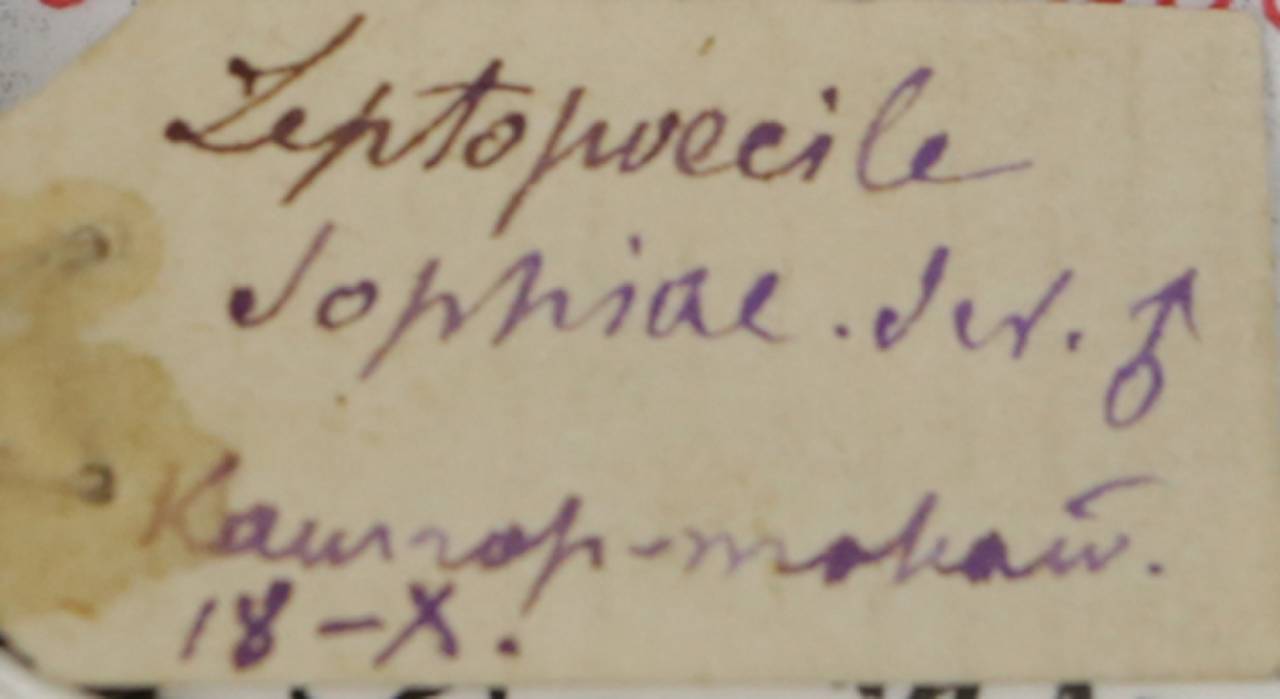 Leptopoecile
Sophiae. Sev. ♂
Кашгар-токай.
18-X.